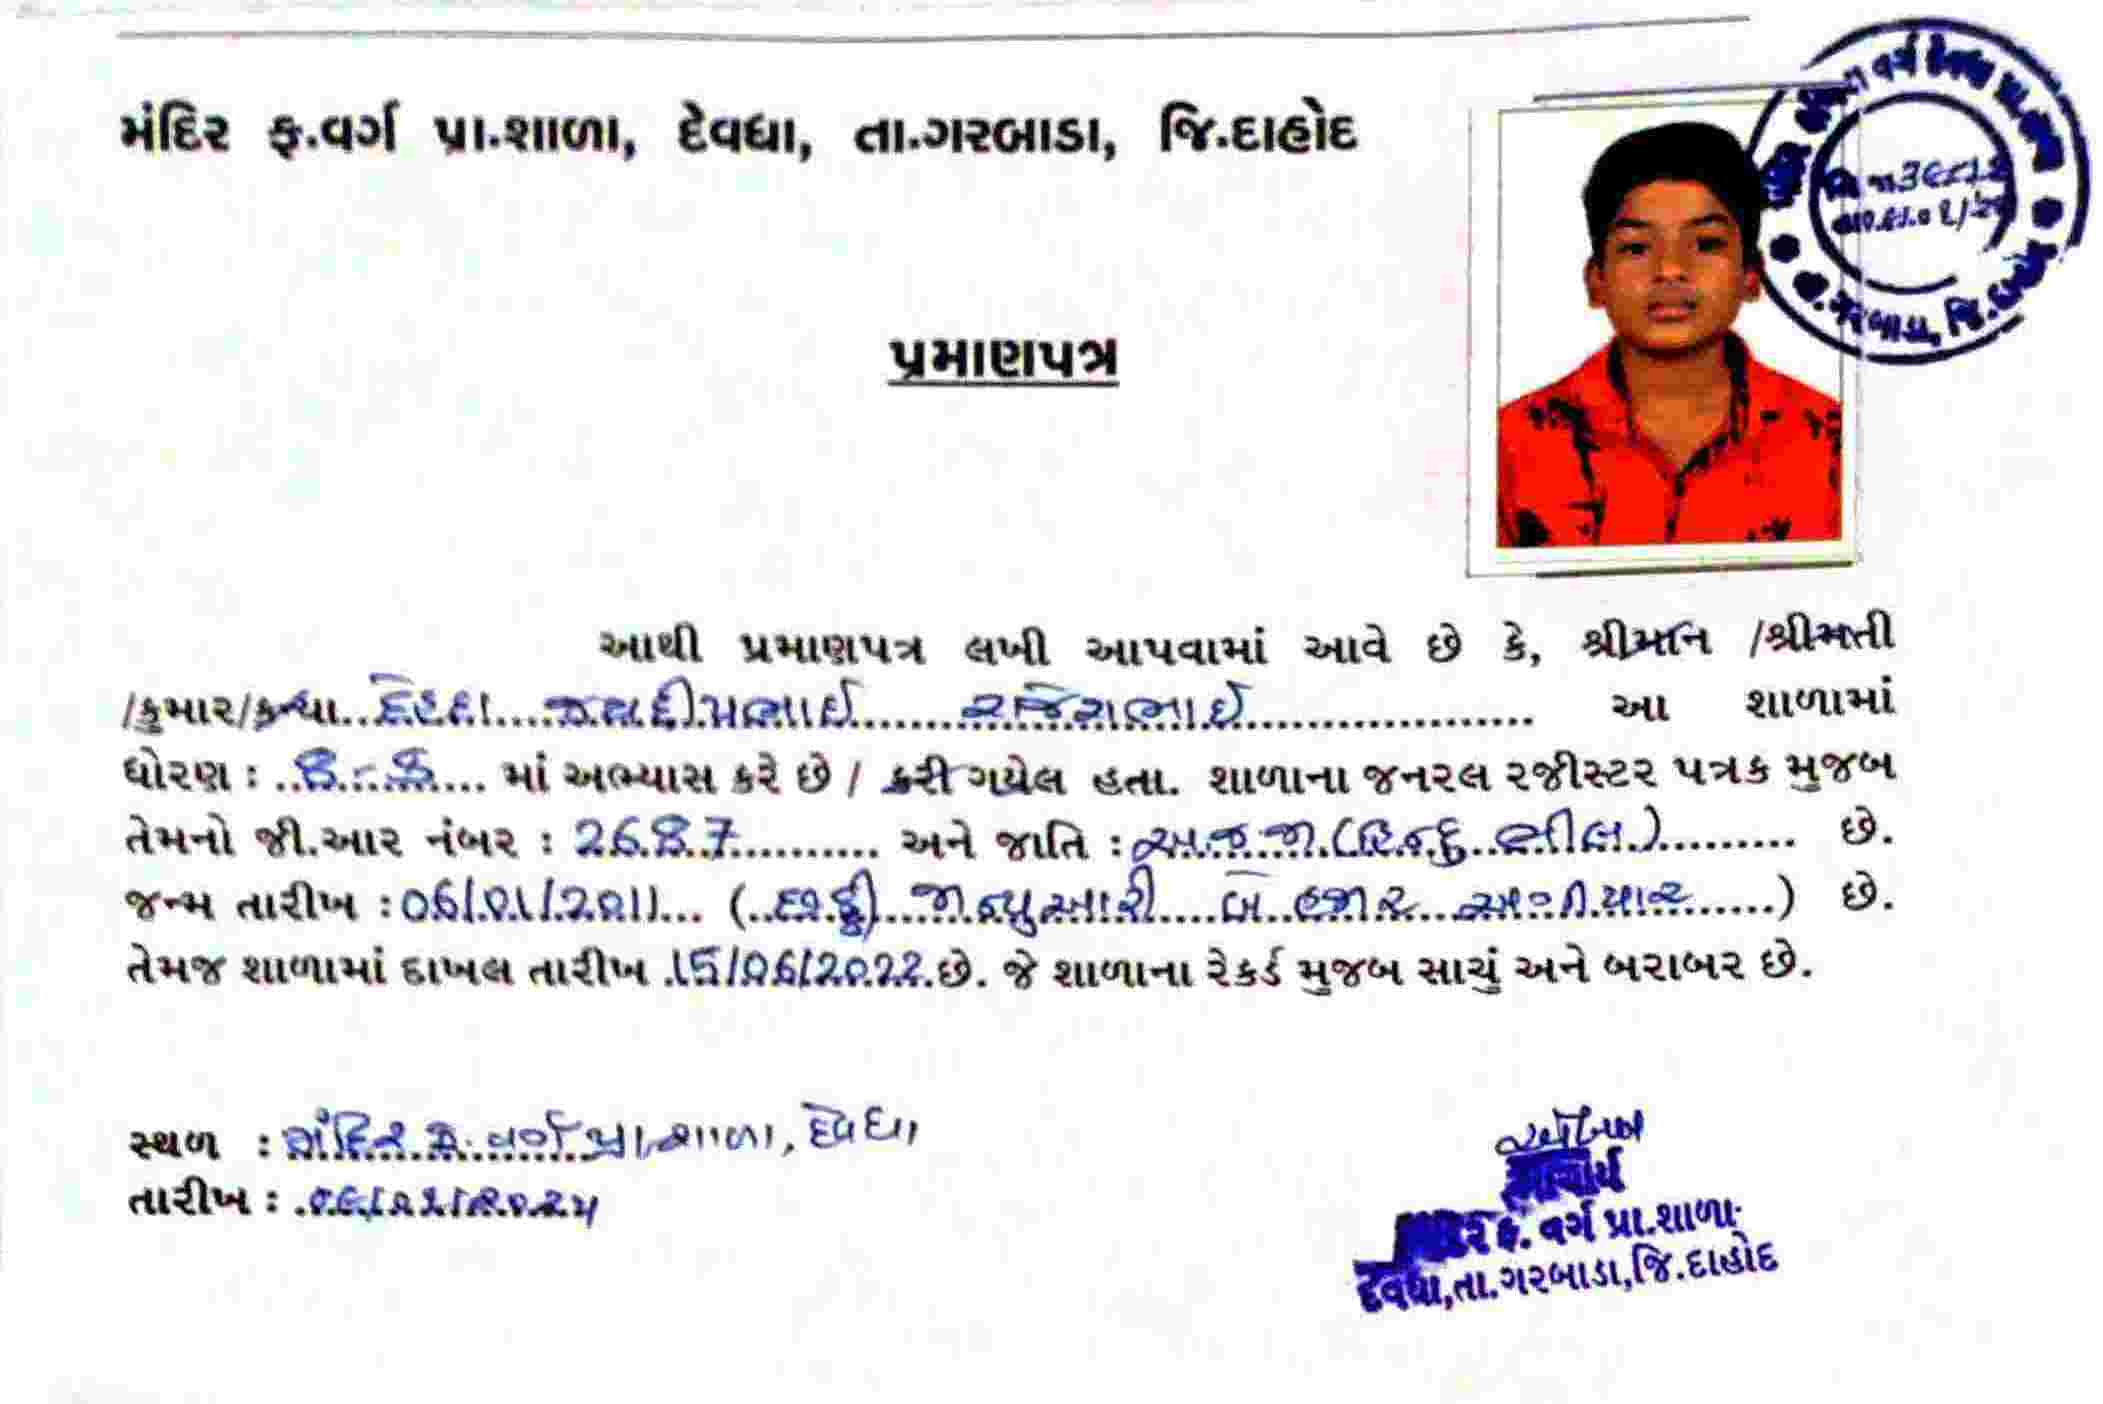 મંદિર ફ.વર્ગ પ્રા.શાળા, દેવધા, તા.ગરબાડા, જિ.દાહોદ
વર્ગ દેવધા પ્રા.શાળા
તા.ગરબાડા, જિ.દાહોદ
પ્રમાણપત્ર
આથી પ્રમાણપત્ર લખી આપવામાં આવે છે કે, શ્રીમાન /શ્રીમતી
/કુમાર/કન્યા.. .... જયદીપભાઈ........રાજેશભાઈ.................... આ શાળામાં
ધોરણ : ..8..... માં અભ્યાસ કરે છે / કરી ગયેલ હતા. શાળાના જનરલ રજીસ્ટર પત્રક મુજબ
તેમનો જી.આર નંબર : 2687.......... અને જાતિ : અ.જ.જા.(હિન્દુ ભીલ.).......... છે.
જન્મ તારીખ : 06/01/2011... (..છઠ્ઠી...જાન્યુઆરી....બે હજાર...અગીયાર......) છે.
તેમજ શાળામાં દાખલ તારીખ .15/06/2022.છે. જે શાળાના રેકર્ડ મુજબ સાચું અને બરાબર છે.
સ્થળ : મંદિર ફ. વર્ગ પ્રા.શાળા, દેવધા
તારીખ :
આચાર્ય
મંદિર ફ. વર્ગ પ્રા.શાળા
દેવધા,તા.ગરબાડા,જિ.દાહોદ